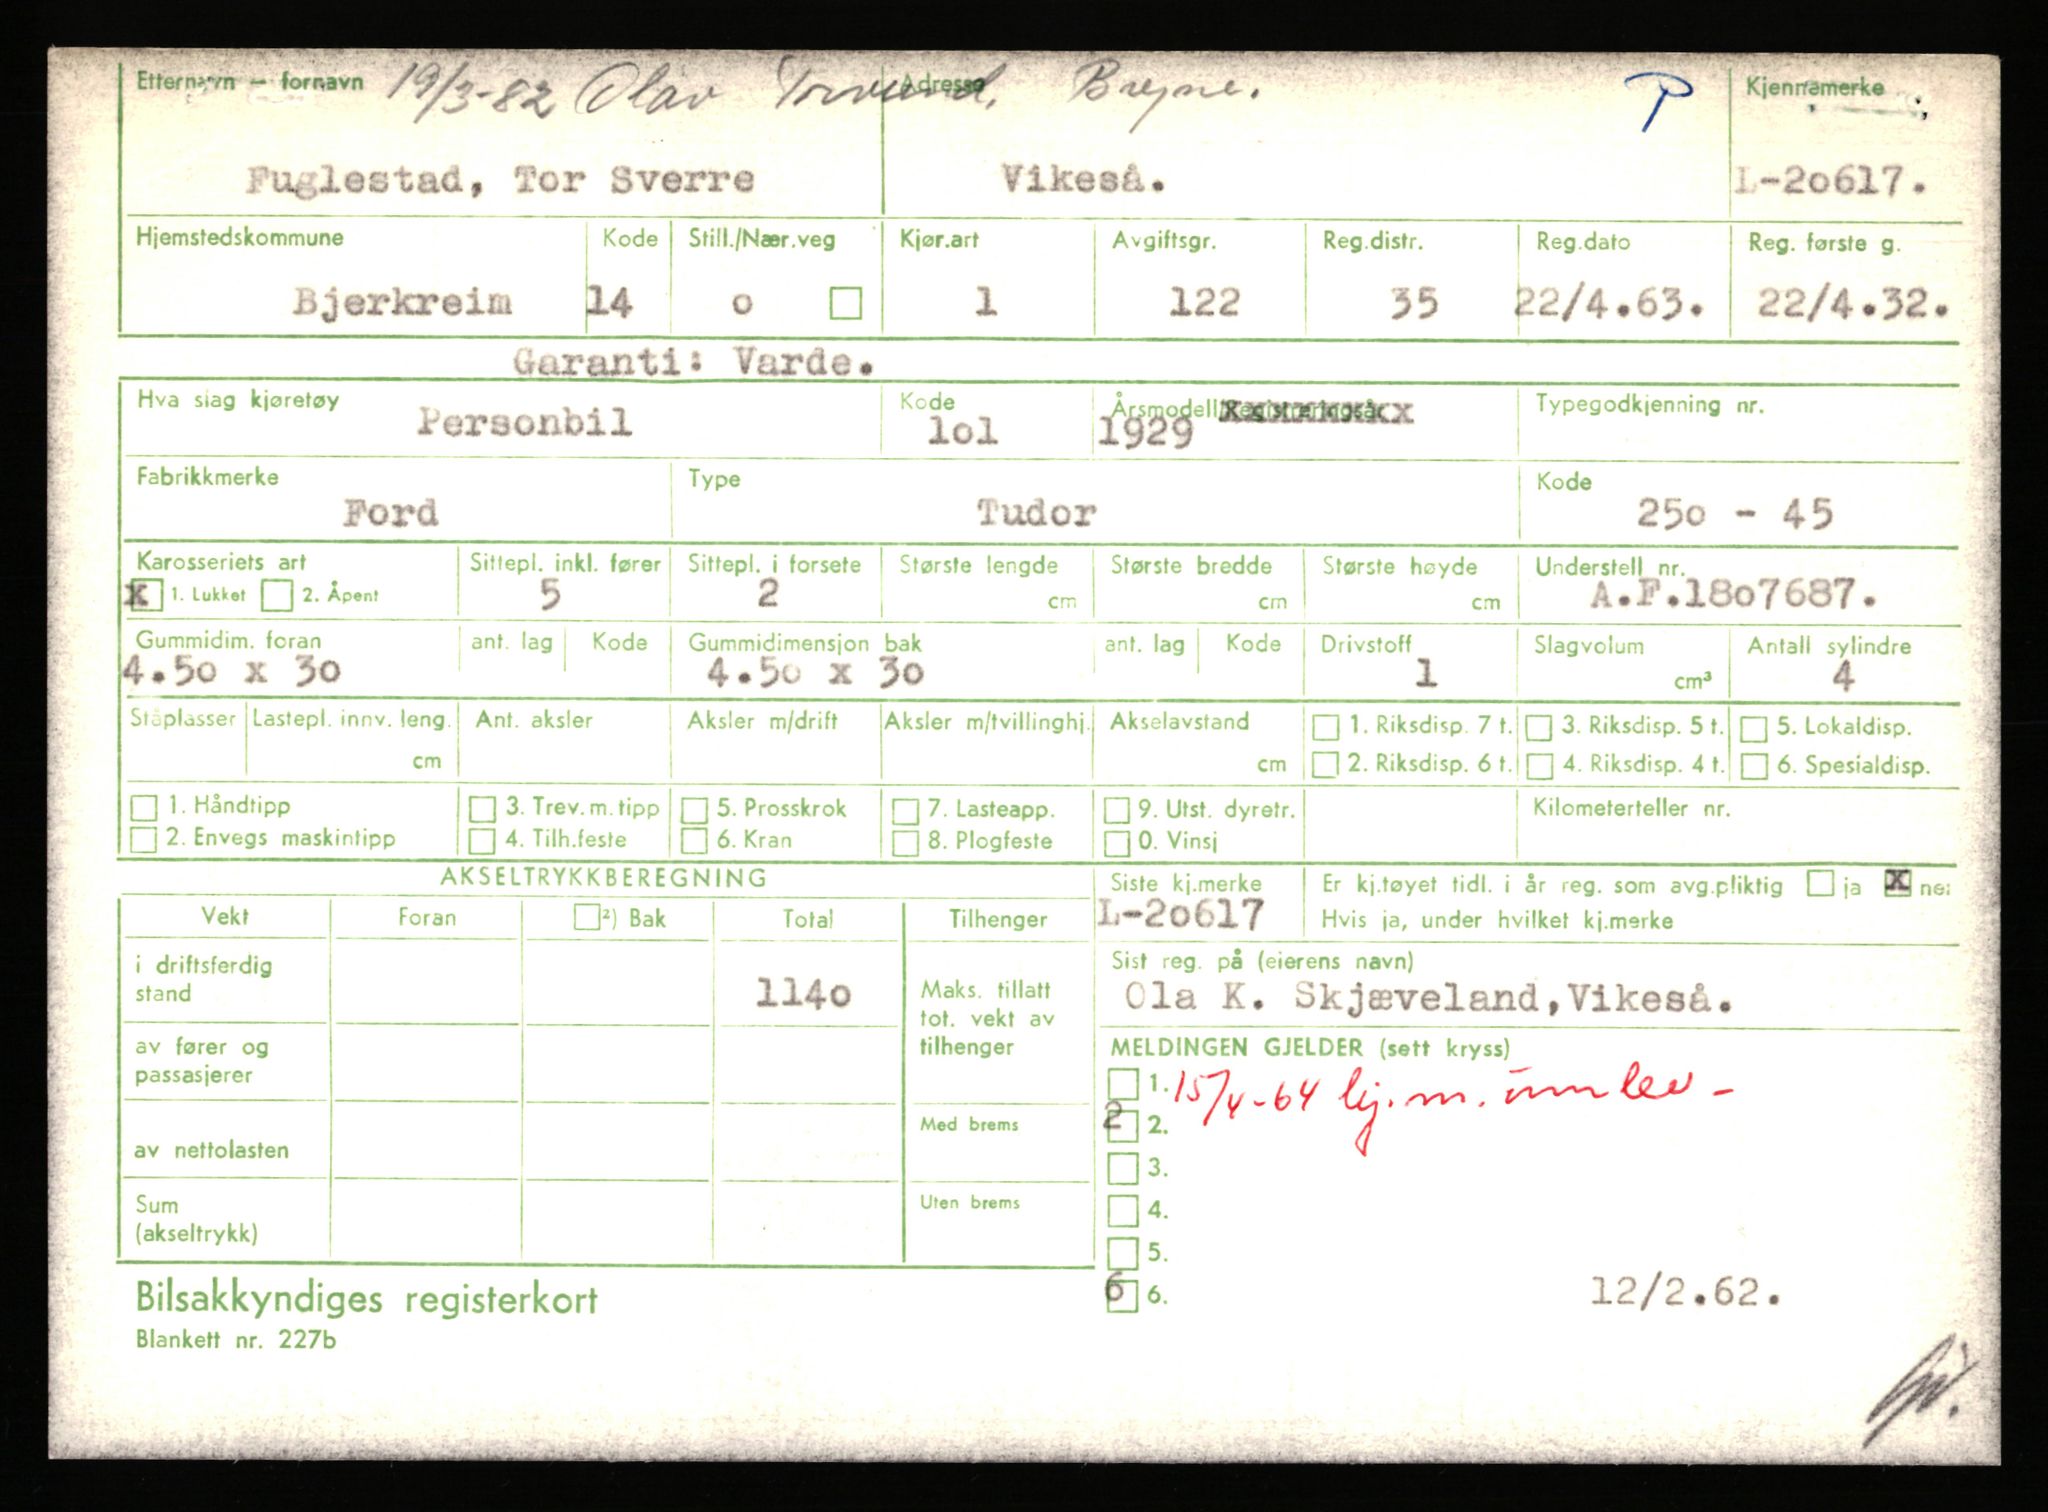 Etternavn – fornavn 19/3-82 Olav Adresse Bryne. P Kjennemerke
Fuglestad, Tor Sverre Vikeså. L-20617.
Hjemstedskommune Kode Still./Nær.veg Kjør.art Avgiftsgr. Reg.distr. Reg.dato Reg. første g.
Bjerkreim 14 o 1 122 35 22/4.63. 22/4.32.
Garanti: Varde.
Hva slag kjøretøy Kode Årsmodell/Registreringsår Typegodkjenning nr.
Personbil 101 1929
Fabrikkmerke Type Kode
Ford Tudor 250 - 45
Karosseriets art Sittepl. inkl. fører Sittepl. i forsete Største lengde Største bredde Største høyde Understell nr.
x 1. Lukket 2. Åpent 5 2 cm cm cm A.F.1807687.
Gummidim. foran ant. lag Kode Gummidimensjon bak ant. lag Kode Drivstoff Slagvolum Antall sylindre
4.50 x 30 4.50 x 30 1 cm³ 4
Ståplasser Lastepl. innv. leng. Ant. aksler Aksler m/drift Aksler m/tvillinghj. Akselavstand 1. Riksdisp. 7 t. 3. Riksdisp. 5 t. 5. Lokaldisp.
cm cm 2. Riksdisp. 6 t. 4. Riksdisp. 4 t. 6. Spesialdisp.
1. Håndtipp 3. Trev. m. tipp 5. Prosskrok 7. Lasteapp. 9. Utst. dyretr. Kilometerteller nr.
2. Envegs maskintipp 4. Tilh.feste 6. Kran 8. Plogfeste 0. Vinsj
AKSELTRYKKBEREGNING Siste kj.merke Er kj.tøyet tidl. i år reg. som avg.pliktig ja x nei
Vekt Foran ²) Bak Total Tilhenger L-20617 Hvis ja, under hvilket kj.merke
i driftsferdig stand 1140 Maks. tillatt tot. vekt av tilhenger
Sist reg. på (eierens navn)
Ola K. Skjæveland, Vikeså.
av fører og passasjerer
MELDINGEN GJELDER (sett kryss)
1. 15/4-64 kj.m. innlev -
av nettolasten Med brems 2 2.
3.
Sum (akseltrykk) Uten brems 4.
5.
Bilsakkyndiges registerkort 6 6. 12/2.62.
Blankett nr. 227b